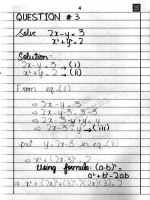 4
QUESTION # 3
Solve 2x-y = 3
x²+y² = 2
Solution:
2x-y = 3 → (i)
x²+y = 2 → (ii)
From eq (i)
⇒ 2x-y = 3
⇒ 2x-y-3 = 3-3
⇒ 2x-3-y+y = y
⇒ 2x-3 = y → (iii)
put y = 2x-3 in eq (ii)
⇒ x²+(2x-3)² = 2
Using formula (a-b)² =
a²+b²-2ab
⇒ x²+(2x)²+(3)²-2(2x)(3) = 2